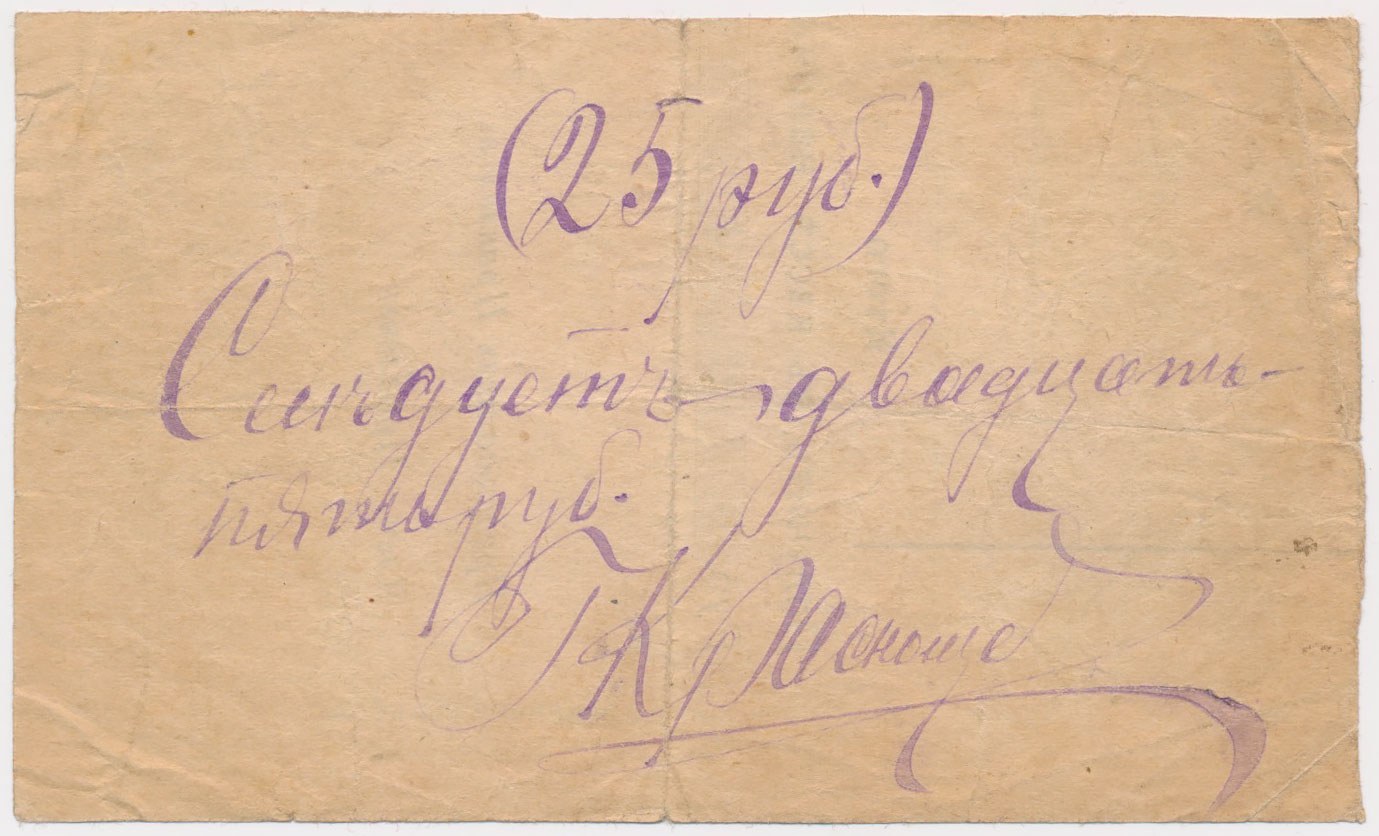 (25 руб.)
Слѣдуетъ двадцать-
пять руб.
Г Красноще